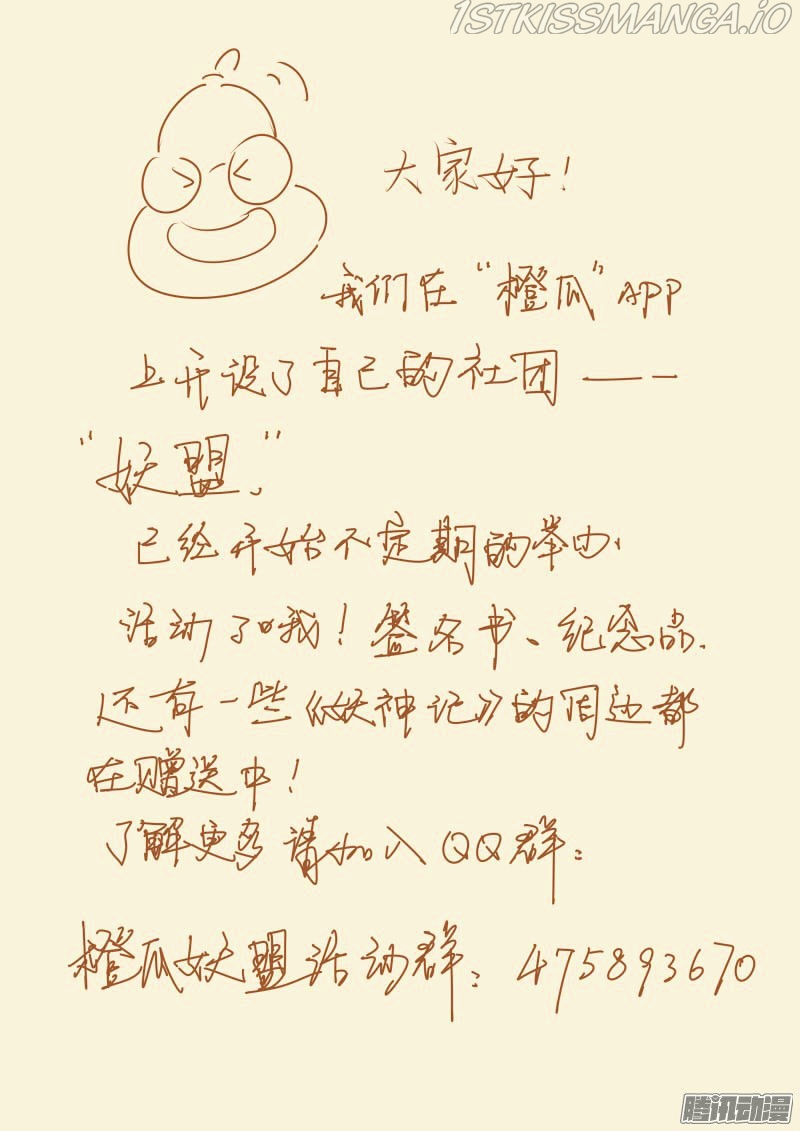 1STKISSMANGA.iO
大家好！
我们在“橙瓜”APP
上开设了自己的社团——
“妖盟”
已经开始不定期的举办
活动了哦！签名书、纪念品、
还有一些《妖神记》的周边都
在赠送中！
了解更多请加入QQ群：
橙瓜妖盟活动群：475893670
腾讯动漫